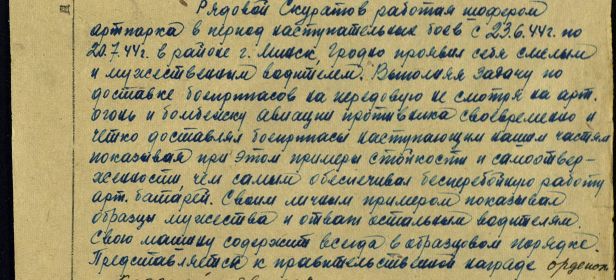 Рядовой Скуратов работая шофером
артпарка в период наступательных боев с 23.6.44г. по
20.7.44г. в районе г. Минск, Гродно проявил себя смелым
и мужественным водителем. Выполняя задачу по
доставке боеприпасов на передовую не смотря на арт.
огонь и бомбежку авиации противника своевременно и
четко доставлял боеприпасы наступающим нашим частям
показывая при этом примеры стойкости и самоотвер-
женности чем самым обеспечивал бесперебойную работу
арт. батарей. Своим личным примером показывал
образцы мужества и отваги остальным водителям.
Свою машину содержит всегда в образцовом порядке.
Представляется к правительственной награде орденом